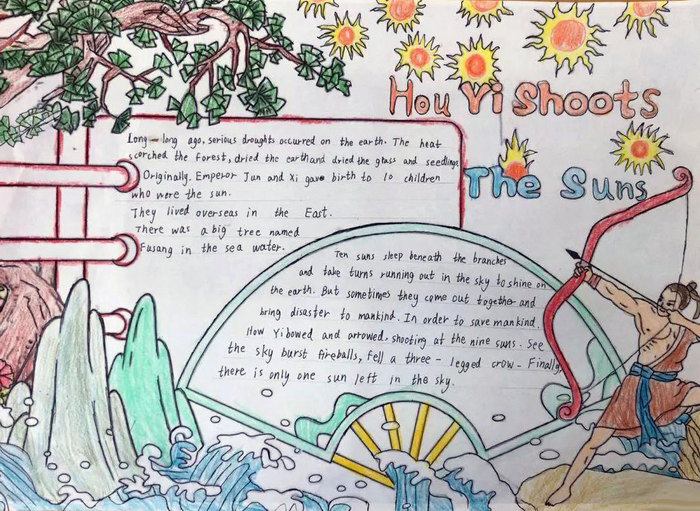 Hou Yi Shoots
The Suns
Long - long ago, serious droughts occurred on the earth. The heat
scorched the forest, dried the earth and dried the glass and seedlings
Originally, Emperor Jun and Xi gave birth to 10 children
who were the sun.
They lived overseas in the East.
There was a big tree named
Fusang in the sea water.
Ten suns sleep beneath the branches
and take turns running out in the sky to shine on
the earth. But sometimes they come out together and
bring disaster to mankind. In order to save mankind.
How Yi bowed and arrowed, shooting at the nine suns. See
the sky burst fireballs, fell a three - legged crow - Finally
there is only one sun left in the sky.